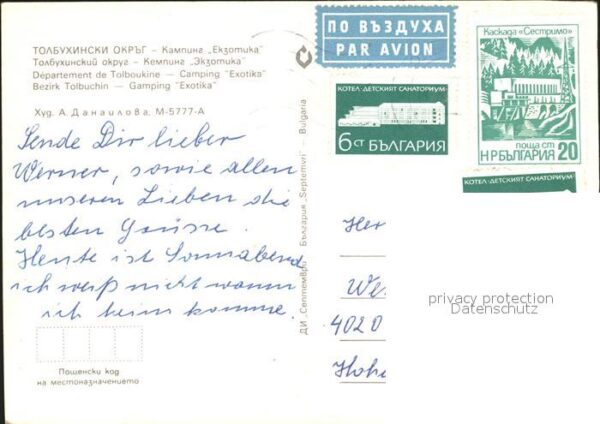 ПО ВЪЗДУХА
PAR AVION
Каскада „Сестримо"
поща ст
НРБЪЛГАРИЯ 20
КОТЕЛ-ДЕТСКИЯТ САНАТОРИУМ
6 СТ БЪЛГАРИЯ
КОТЕЛ-ДЕТСКИЯТ САНАТОРИУМ
ТОЛБУХИНСКИ ОКРЪГ – Кампинг „Екзотика"
Толбухинский округ – Кемпинг „Экзотика"
Département de Tolboukine – Camping "Exotika"
Bezirk Tolbuchin – Gamping "Exotika"
Худ. А. Данаилова, М-5777-А
Sende Dir lieber
Werner, sowie allen
unseren Lieben die
besten Grüsse.
Heute ist Sonnabend
ich weiß nicht wann
ich heim komme.
Пощенски код
на местоназначението
ДИ „Септември" България „Septemvri" – Bulgaria
Her
We
4020
Hohe
privacy protection
Datenschutz